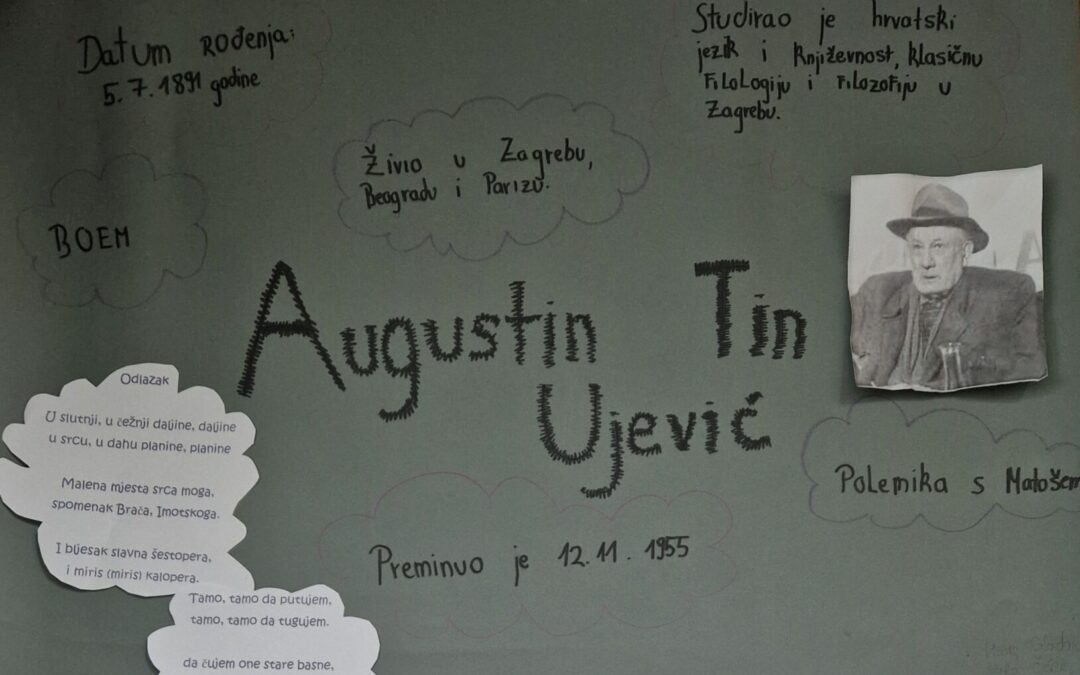 Datum rođenja:
5. 7. 1891 godine
Studirao je hrvatski
jezik i književnost, klasičnu
filologiju i filozofiju u
Zagrebu.
Živio u Zagrebu,
Beogradu i Parizu.
BOEM
Augustin Tin
Ujević
Polemika s Matošem
Preminuo je 12. 11. 1955
Odlazak
U slutnji, u čežnji daljine, daljine
u srcu, u dahu planine, planine
Malena mjesta srca moga,
spomenak Brača, Imotskoga.
I bljesak slavna šestopera,
i miris (miris) kalopera.
Tamo, tamo da putujem,
tamo, tamo da tugujem.
da čujem one stare basne,